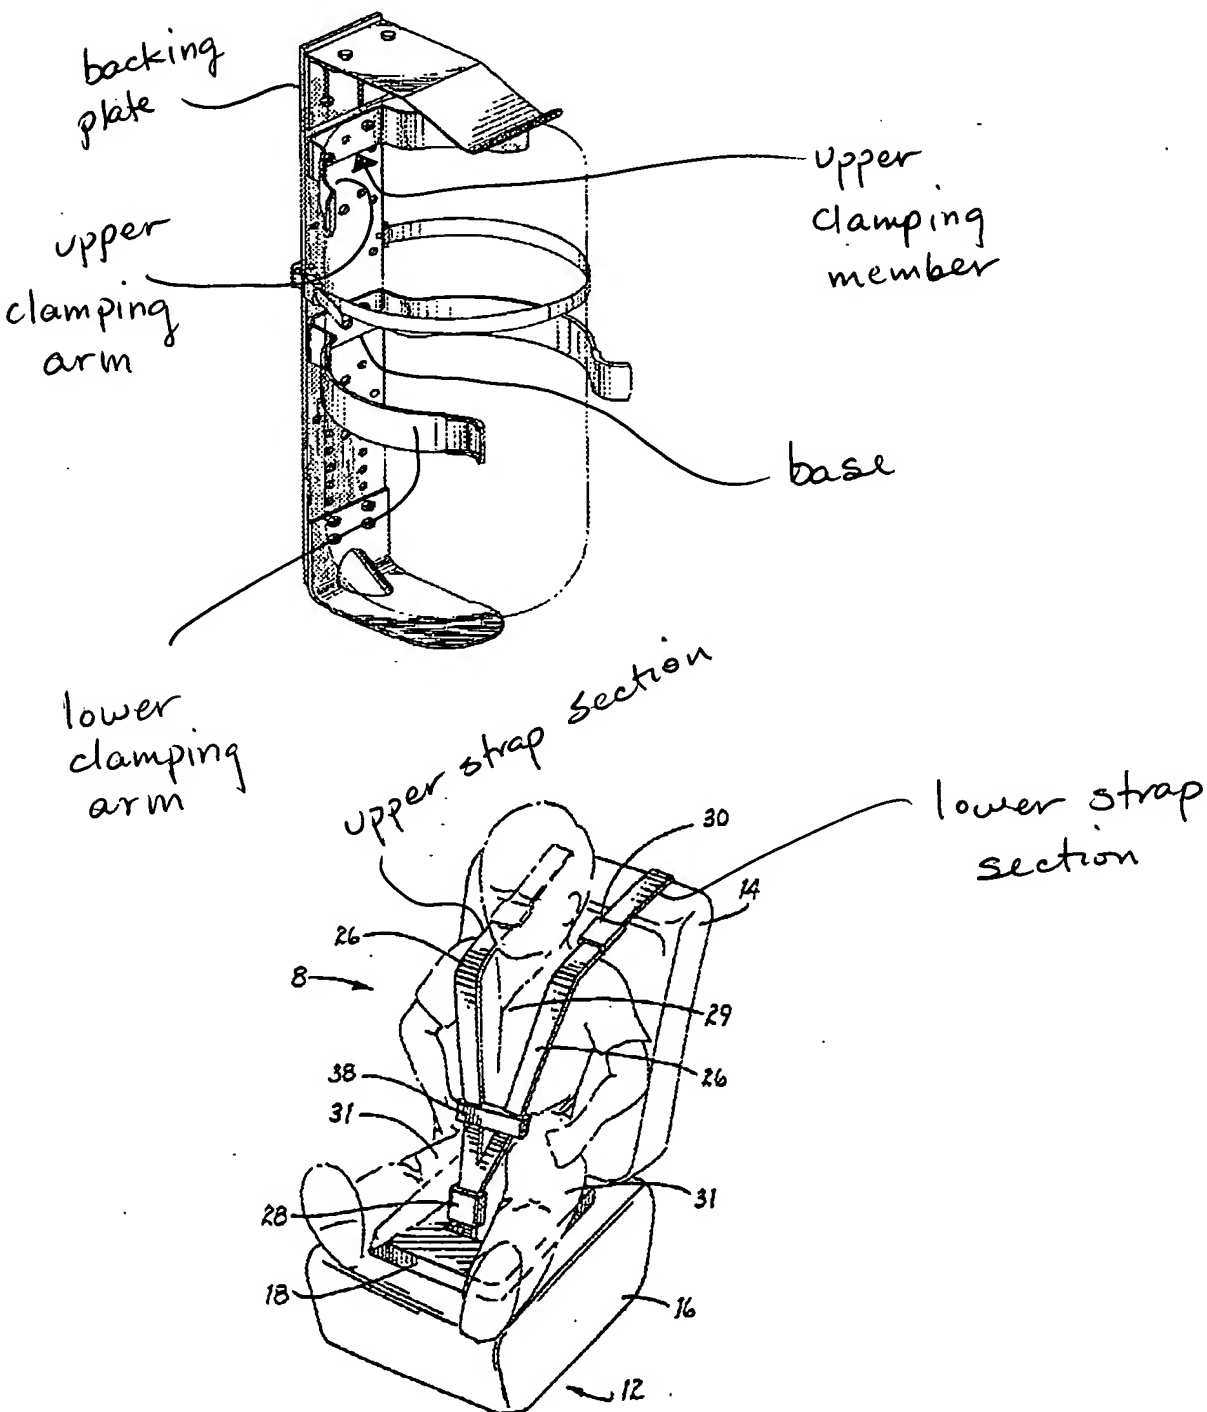 backing
plate
upper
clamping
member
upper
clamping
arm
base
lower
clamping
arm
upper strap section
lower strap
section
30
14
26
8
29
26
38
31
28
31
18
16
12